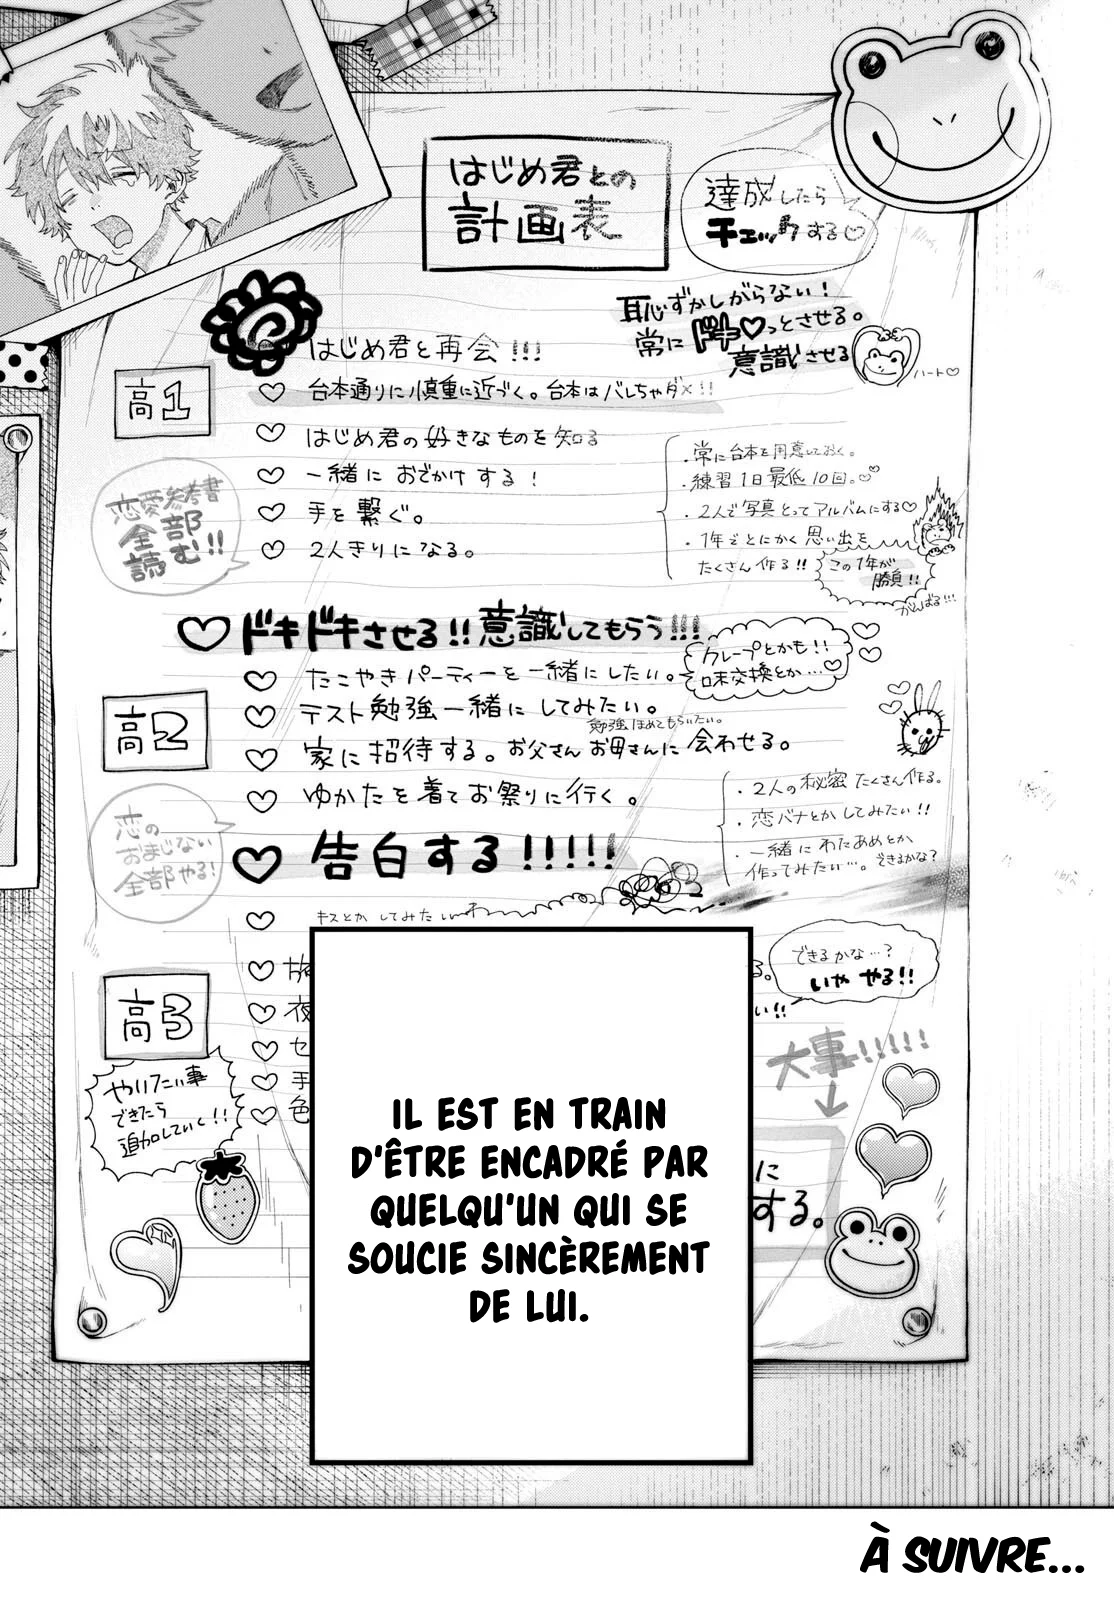 はじめ君との
計画表
達成したら
チェックする♡
恥ずかしがらない！
常にドキ♡っとさせる。
意識させる
ハート♡
はじめ君と再会!!!
高1
♡ 台本通りに慎重に近づく。台本はバレちゃダメ!!
♡ はじめ君の好きなものを知る
♡ 一緒におでかけする！
♡ 手を繋ぐ。
♡ 2人きりになる。
恋愛参考書
全部
読む!!
・常に台本を用意しておく。
・練習1日最低10回。
・2人で写真とってアルバムにする♡
・1年ごとにかく思い出を
たくさん作る!!
この1年が
勝負!!
がんばる!!!
♡ドキドキさせる!!意識してもらう!!!
♡ たこやきパーティーを一緒にしたい。
クレープとかも!!
味交換とか…♡
高2
♡ テスト勉強一緒にしてみたい。
勉強ほめてもらいたい。
♡ 家に招待する。お父さんお母さんに会わせる。
♡ ゆかたを着てお祭りに行く。
♡ 告白する!!!!!
恋の
おまじない
全部やる!
・2人の秘密たくさん作る。
・恋バナとかしてみたい!!
・一緒にわたあめとか
作ってみたい…。できるかな?
♡ キスとかしてみたい
できるかな…?
いや やる!!
高3
♡
♡ 夜
♡ セ
♡ 手
♡ 色
い!!
やりたい事
できたら
追加していく!!
大事!!!!!
に
する。
IL EST EN TRAIN
D'ÊTRE ENCADRÉ PAR
QUELQU'UN QUI SE
SOUCIE SINCÈREMENT
DE LUI.
À SUIVRE...